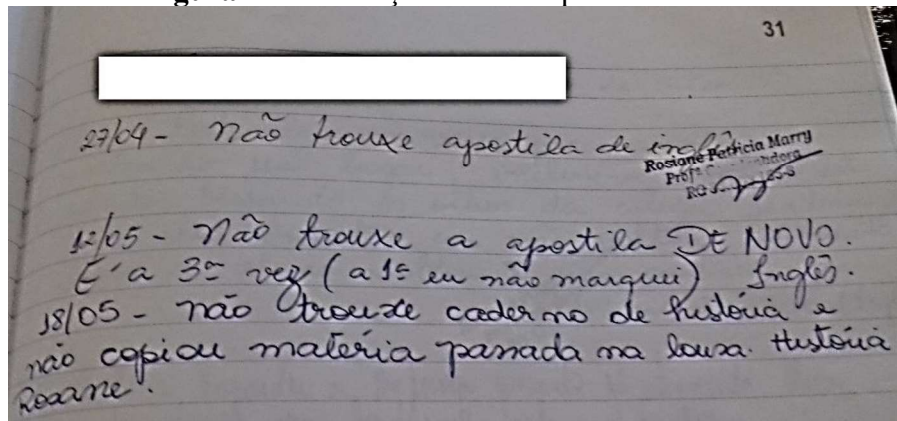 31
27/04 - não trouxe apostila de inglês
Rosiane Patricia Marry
Profª
RG
12/05 - Não trouxe a apostila DE NOVO.
É a 3ª vez (a 1ª eu não marqui) Inglês.
18/05 - não trouxe caderno de história e
não copiou matéria passada na lousa. História
Rosane.